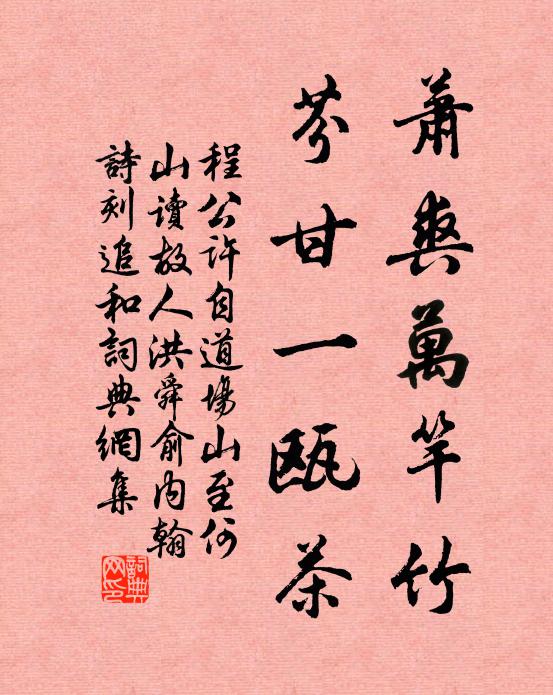 蕭爽萬竿竹
芬甘一甌茶
程公許自道場山至何
山讀故人洪舜俞內翰
詩刻追和詞典網集
詞典网印